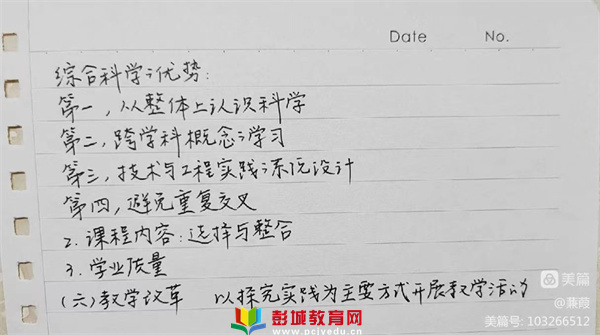 Date No.
综合科学之优势:
第一,从整体上认识科学
第二,跨学科概念之学习
第三,技术与工程实践之系统设计
第四,避免重复交叉
2.课程内容:选择与整合
3.学业质量
(六)教学改革 以探究实践为主要方式开展教学活动
美篇 @蒹葭
美篇号: 103266512
彭城教育网
www.pcjyedu.cn